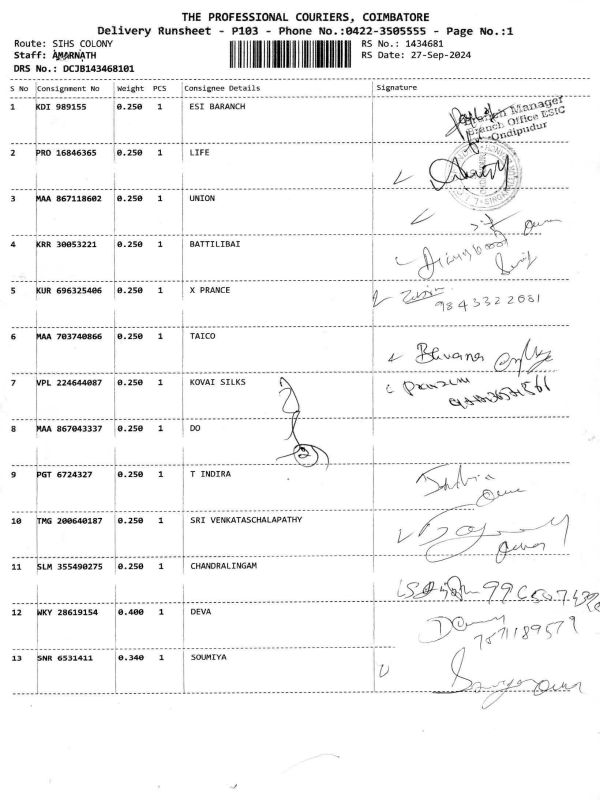 THE PROFESSIONAL COURIERS, COIMBATORE
Delivery Runsheet - P103 - Phone No.:0422-3505555 - Page No.:1
Route: SIHS COLONY RS No.: 1434681
Staff: AMARNATH RS Date: 27-Sep-2024
DRS No.: DCJB143468101
S No Consignment No Weight PCS Consignee Details Signature
1 KDI 989155 0.250 1 ESI BARANCH
Branch Manager
Branch Office ESIC
Ondipudur
2 PRO 16846365 0.250 1 LIFE
3 MAA 867118602 0.250 1 UNION
4 KRR 30053221 0.250 1 BATTILIBAI
5 KUR 696325406 0.250 1 X PRANCE
9843322681
6 MAA 703740866 0.250 1 TAICO
Bhuvana
7 VPL 224644087 0.250 1 KOVAI SILKS
8 MAA 867043337 0.250 1 DO
2
9 PGT 6724327 0.250 1 T INDIRA
10 TMG 200640187 0.250 1 SRI VENKATASCHALAPATHY
11 SLM 355490275 0.250 1 CHANDRALINGAM
12 WKY 28619154 0.400 1 DEVA
13 SNR 6531411 0.340 1 SOUMIYA